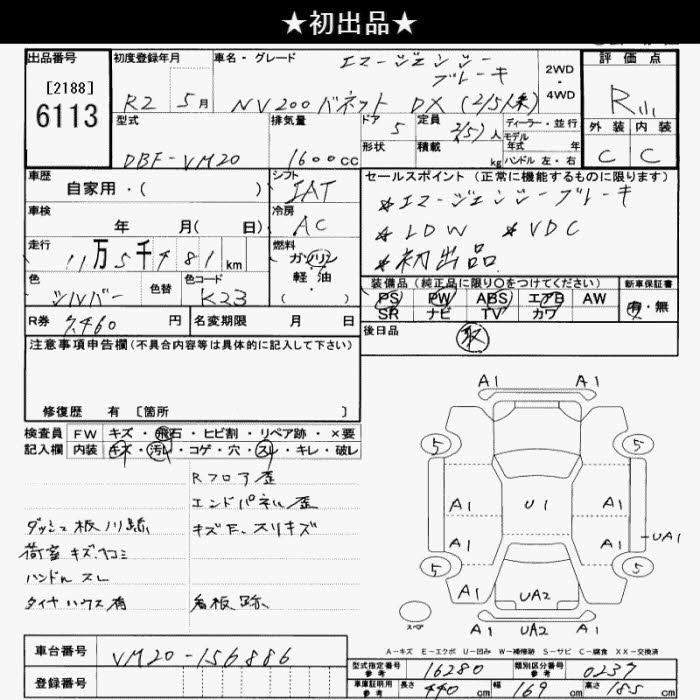 ★初出品★
出品番号
[2188]
6113
初度登録年月
R2 5月
車名・グレード
エマージェンシー
ブレーキ
NV200バネット DX (2/5人乗)
2WD
・
4WD
評価点
R
外装 内装
C C
型式
DBF-VM20
排気量
1600cc
ドア
5
形状
定員
2(5)人
積載
kg
ディーラー・並行
モデル
年式 年
ハンドル 左・右
車歴
自家用・( )
シフト
IAT
車検
年 月( 日)
冷房
AC
走行
11万5千481km
燃料
ガソリン
軽・油
( )
色
シルバー
色替
色コード
K23
セールスポイント(正常に機能するものに限ります)
*エマージェンシーブレーキ
*LDW *VDC
*初出品
装備品(純正品に限り○をつけてください)
PS PW ABS エアB AW
SR ナビ TV カワ
新車保証書
有・無
R券 7,460円
名変期限 月 日
後日品
取
注意事項申告欄(不具合内容等は具体的に記入して下さい)
修復歴 有 [箇所 ]
検査員
記入欄
FW キズ・飛石・ヒビ割・リペア跡・×要
内装 キズ・汚レ・コゲ・穴・スレ・キレ・破レ
Rフロア歪
エンドパネル歪
キズE、スリキズ
荷室 キズ・ヘコミ
ハンドル スレ
タイヤハウス有
看板跡
A1 A1
5 5
A1 U1 A1
A1 A1
UA1
5 5
A1 UA2 A1
スペア
A1 UA2 A1
A-キズ E-エクボ U-凹み W-補修跡 S-サビ C-腐食 XX-交換済
車台番号
VM20-156886
登録番号
型式指定番号
参考
16280
類別区分番号
参考
0237
車庫証明用
参考
長さ 440cm
幅 169cm
高さ 185cm